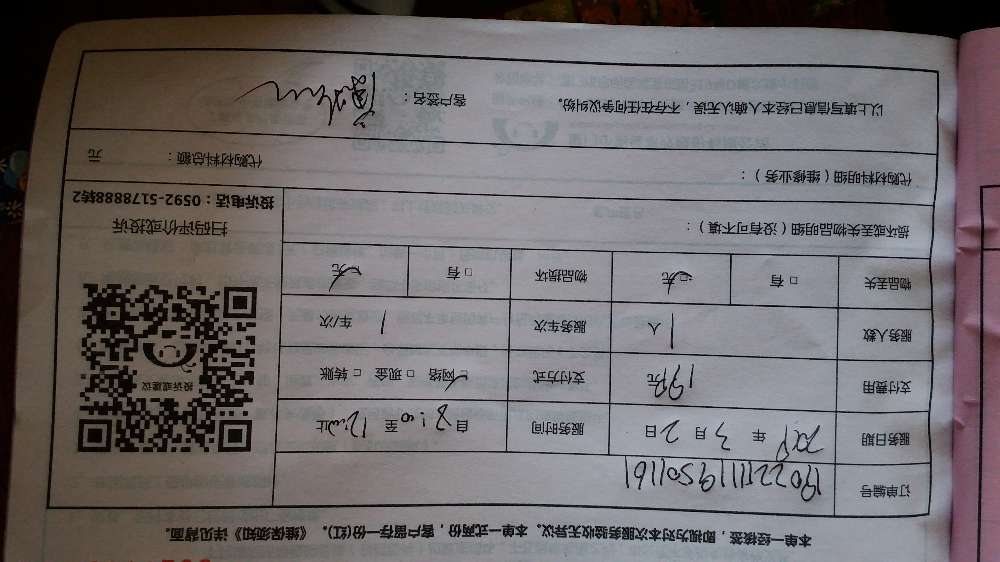 本单一经核签，即视为对本次服务验收无异议。本单一式两份，客户留存一份(红)。《维保须知》详见背面。
订单编号
服务日期 年 3 月 2 日 服务时间 自 8:00 至 12:00 止
支付费用 199元 支付方式 ☑ 网络 □ 现金 □ 转账
服务人数 1 人 服务车次 1 车/次
物品丢失 □ 有 ☑ 无 物品损坏 □ 有 ☑ 无
损坏或丢失物品明细（没有可不填）：
投诉或建议
扫码评价或投诉
投诉电话：0592-5178888转2
代购材料明细（维修业务）： 代购材料总额： 元
以上填写信息已经本人确认无误，不存在任何争议纠纷。 客户签名：